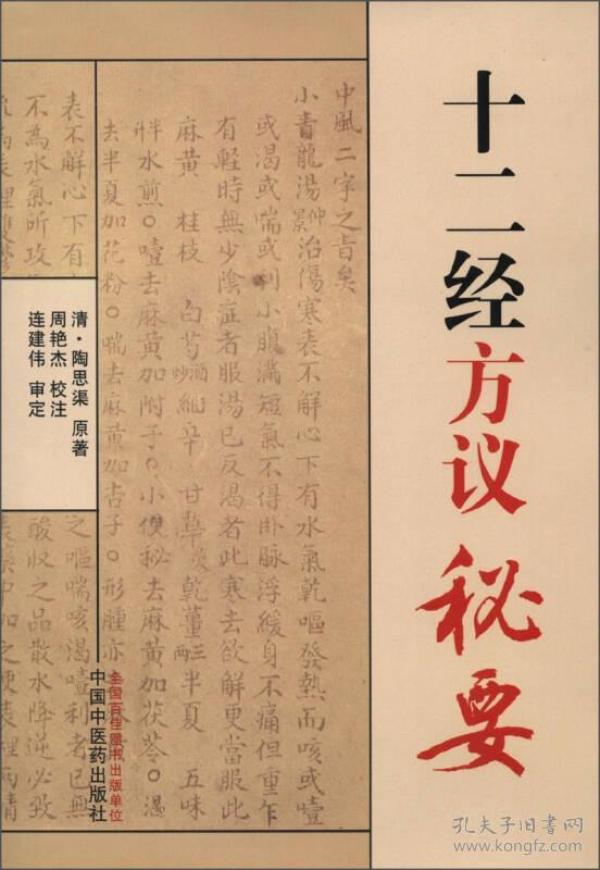 十二经方议秘要
清·陶思渠 原著
周艳杰 校注
连建伟 审定
中風二字之旨矣
小青龍湯仲景治傷寒表不解心下有水氣乾嘔發熱而咳或噎
或渴或喘或利小腹滿短氣不得卧脉浮緩身不痛但重乍
有輕時無少陰症者服湯已反渴者此寒去欲解更當服此
麻黄 桂枝 白芍酒炒 細辛 甘草炙 乾薑三兩 半夏 五味
水煎○噎去麻黄加附子○小便秘去麻黄加茯苓○渴
去半夏加花粉○喘去麻黄加杏子○形腫亦
表不解心下有
不為水氣所攻
之嘔喘咳渴噎利者已無
酸收之品散水降逆必致
全国百佳图书出版单位
中国中医药出版社
孔夫子旧书网
www.kongfz.com